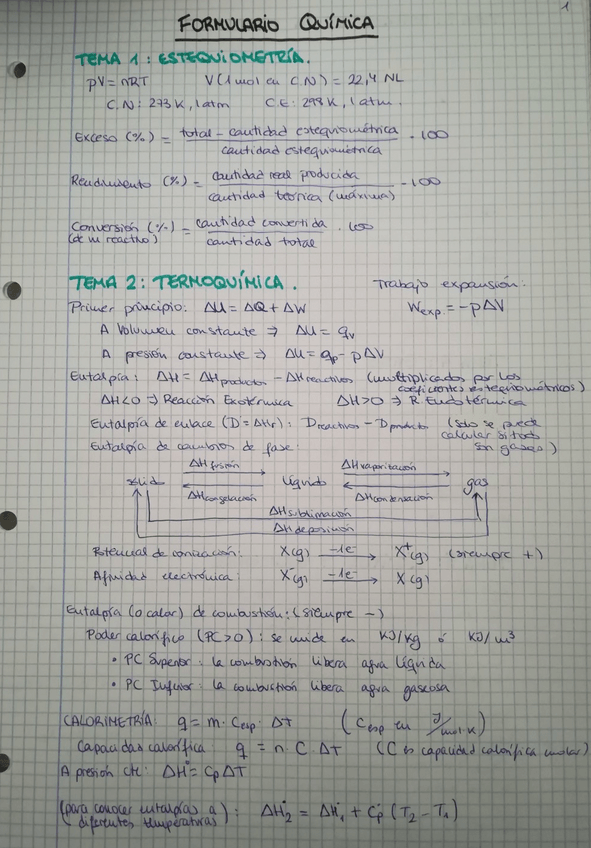 1
FORMULARIO QUÍMICA
TEMA 1: ESTEQUIOMETRÍA.
pV = nRT V(1 mol en C.N) = 22,4 NL
C.N: 273 K, 1 atm C.E: 298 K, 1 atm.
Exceso (%) = total - cantidad estequiométrica / cantidad estequiométrica · 100
Rendimiento (%) = cantidad real producida / cantidad teórica (máxima) · 100
Conversión (%) = cantidad convertida / cantidad total · 100
(de un reactivo)
TEMA 2: TERMOQUÍMICA. Trabajo expansión:
Primer principio: ΔU = ΔQ + ΔW Wexp. = -pΔV
A Volumen constante ⇒ ΔU = qv
A presión constante ⇒ ΔU = qp - pΔV
Entalpía: ΔH = ΔHproductos - ΔHreactivos (multiplicados por los
coeficientes estequiométricos)
ΔH<0 ⇒ Reacción Exotérmica ΔH>0 ⇒ R Endotérmica
Entalpía de enlace (D = ΔHr): Dreactivos - Dproductos (solo se puede
calcular si todo
son gases)
Entalpía de cambios de fase:
ΔHfusión ΔHvaporización
sólido líquido gas
ΔHcongelación ΔHcondensación
ΔHsublimación
ΔHdeposición
Potencial de ionización: X(g) -1e⁻→ X⁺(g) (siempre +)
Afinidad electrónica: X⁻(g) -1e⁻→ X(g)
Entalpía (o calor) de combustión: (siempre -)
Poder calorífico (PC>0): se mide en KJ/Kg ó KJ/m³
• PC Superior: la combustión libera agua líquida
• PC Inferior: la combustión libera agua gaseosa
CALORIMETRÍA: q = m · Cesp · ΔT (Cesp en J/mol·K)
Capacidad calorífica: q = n · C · ΔT (C es capacidad calorífica molar)
A presión cte: ΔH° = Cp ΔT
(para conocer entalpías a
diferentes temperaturas): ΔH°2 = ΔH°1 + C°p (T2 - T1)